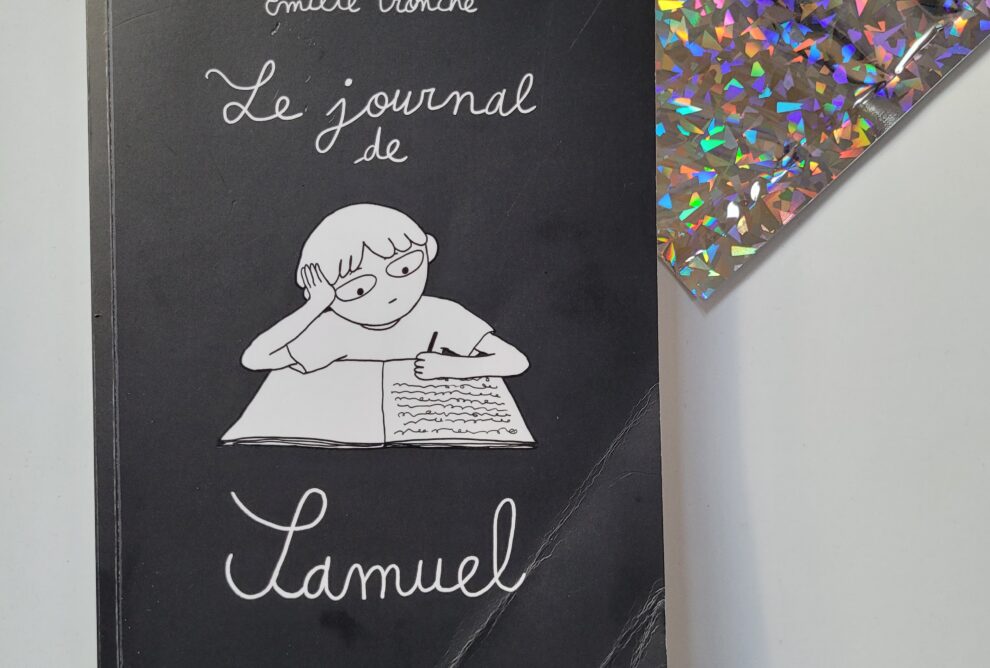 Émilie Tronche
Le journal
de
Samuel